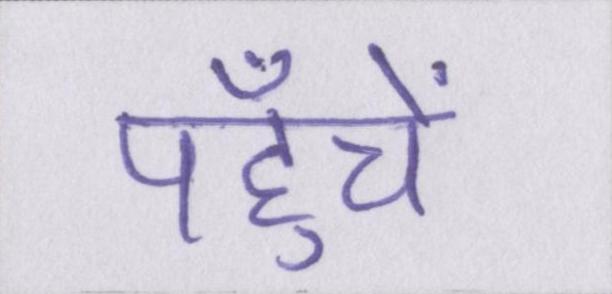 पहुँचें